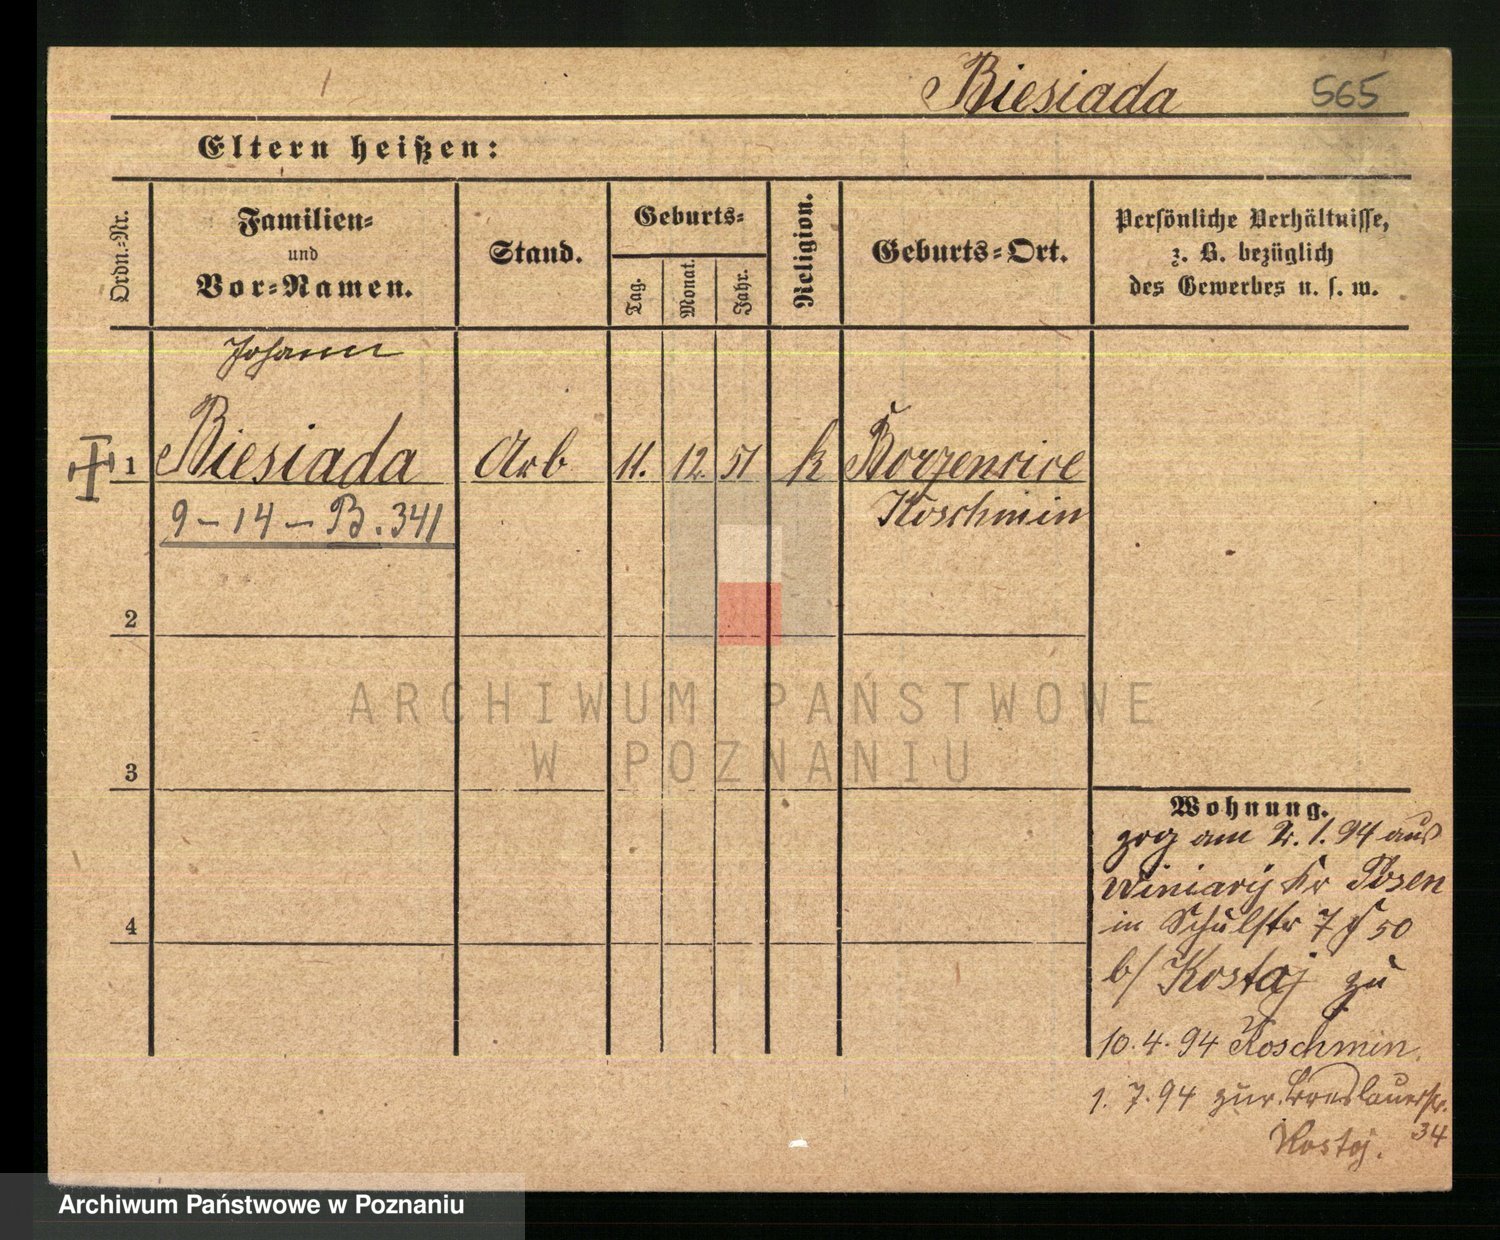 Biesiada 565
Eltern heißen:
Ordn.=Nr.
Familien=
und
Vor=Namen.
Stand.
Geburts=
Tag.
Monat.
Jahr.
Religion.
Geburts=Ort.
Persönliche Verhältnisse,
z. B. bezüglich
des Gewerbes u. s. w.
Johann
1 Biesiada Arb 11. 12. 51 k
Koschmin
9 - 14 - B. 341
2
3
4
ARCHIWUM PAŃSTWOWE
W POZNANIU
Wohnung.
zog am 2. 1. 94 aus
Winiary Kr Posen
in Schulstr 7 50
b/ Kostaj zu
10. 4. 94 Koschmin.
1. 7. 94 zur. Breslauerstr.
34
Kostaj.
Archiwum Państwowe w Poznaniu